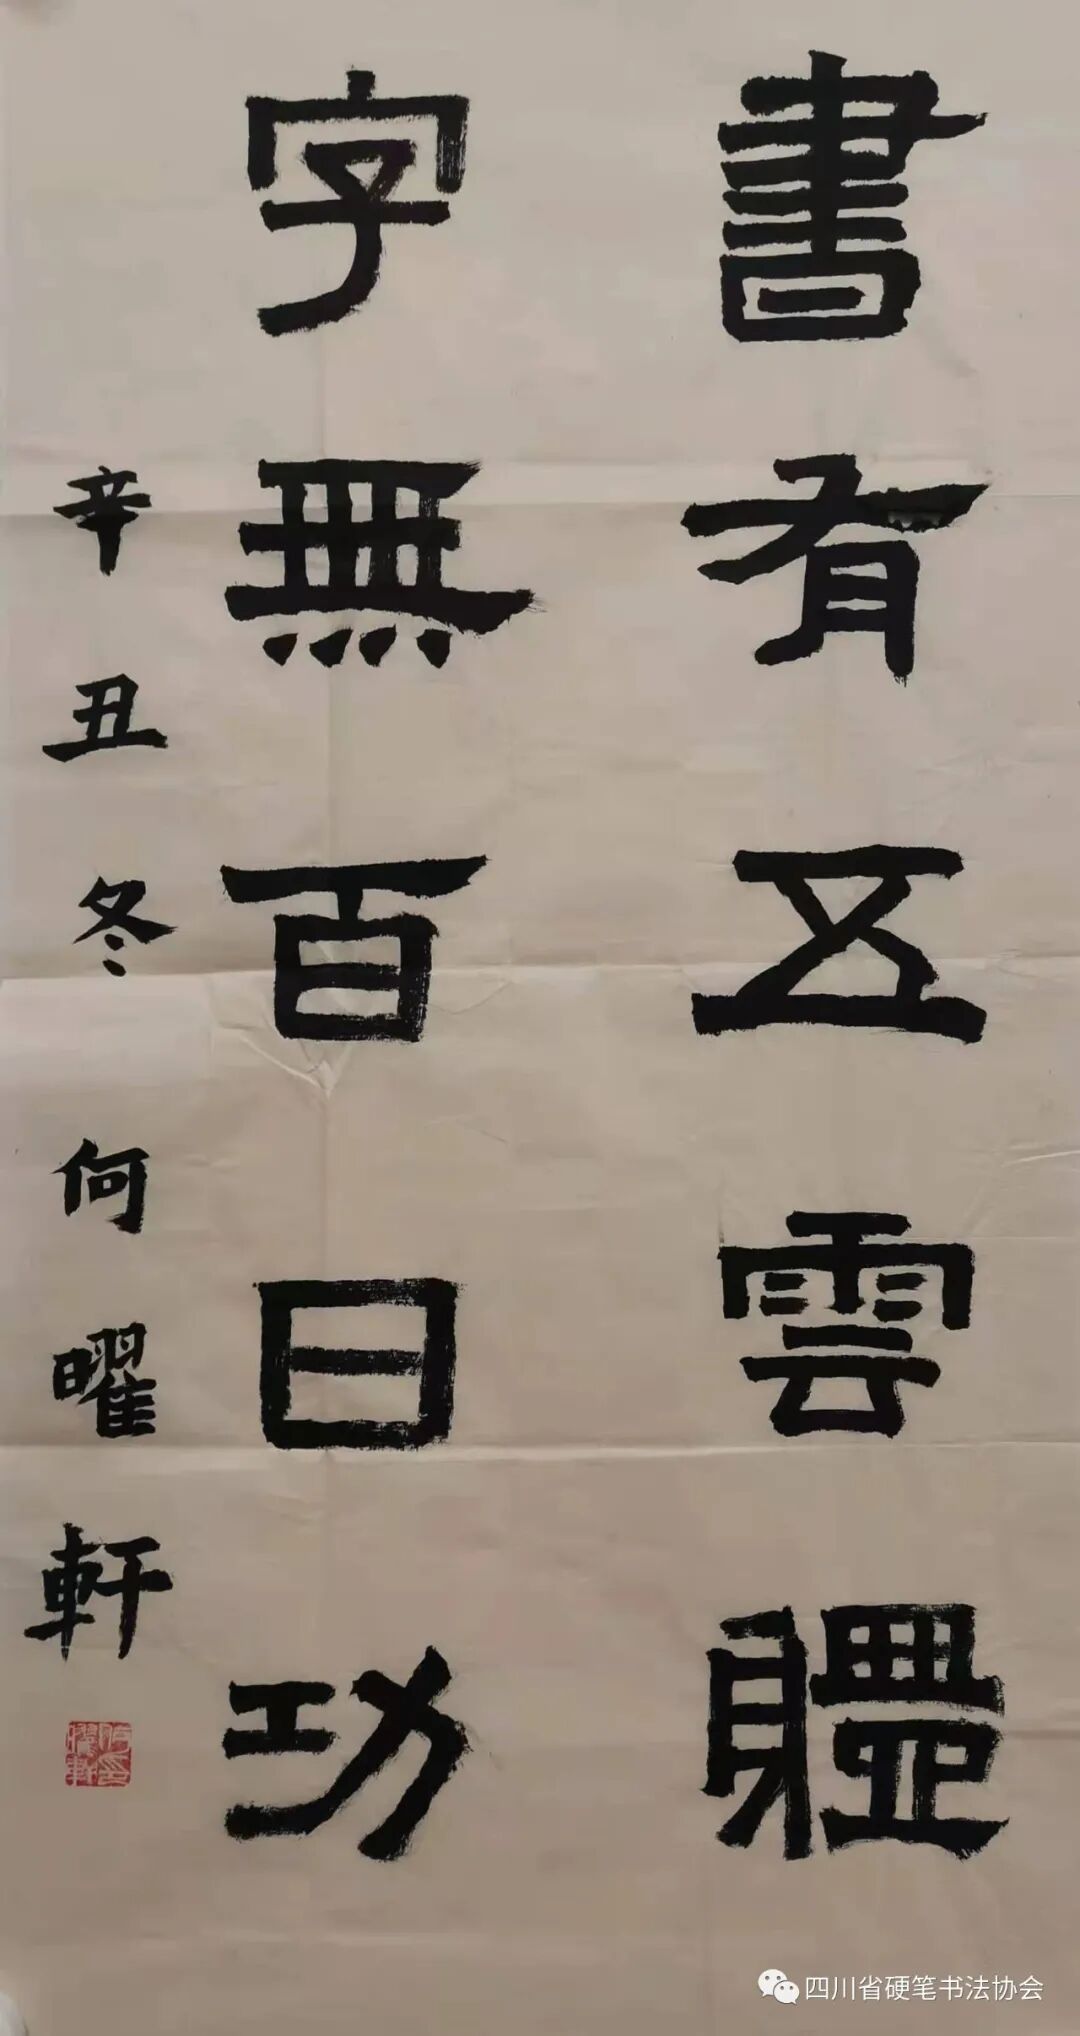 書有五雲軆
字無百日功
辛丑冬 何曜軒
四川省硬笔书法协会